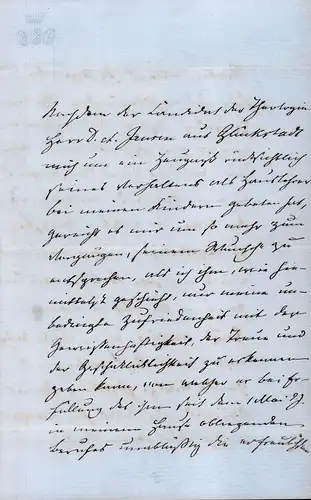 Nachdem der Candidat der Theologie
Herr D. A. Jensen aus Glückstadt
mich um ein Zeugniß rücksichtlich
seines Verhaltens als Hauslehrer
bei meinen Kindern gebeten hat,
gereicht es mir um so mehr zum
Vergnügen, seinem Wunsche zu
entsprechen, als ich ihm, wie hie-
mittelst geschieht, nur meine un-
bedingte Zufriedenheit mit der
Gewissenhaftigkeit, der Treue und
der Geschicklichkeit zu erkennen
geben kann, von welcher er bei Er-
füllung des ihm seit dem 1 Mai
in meinem Hause obliegenden
Berufes unablässig die erfreulichsten